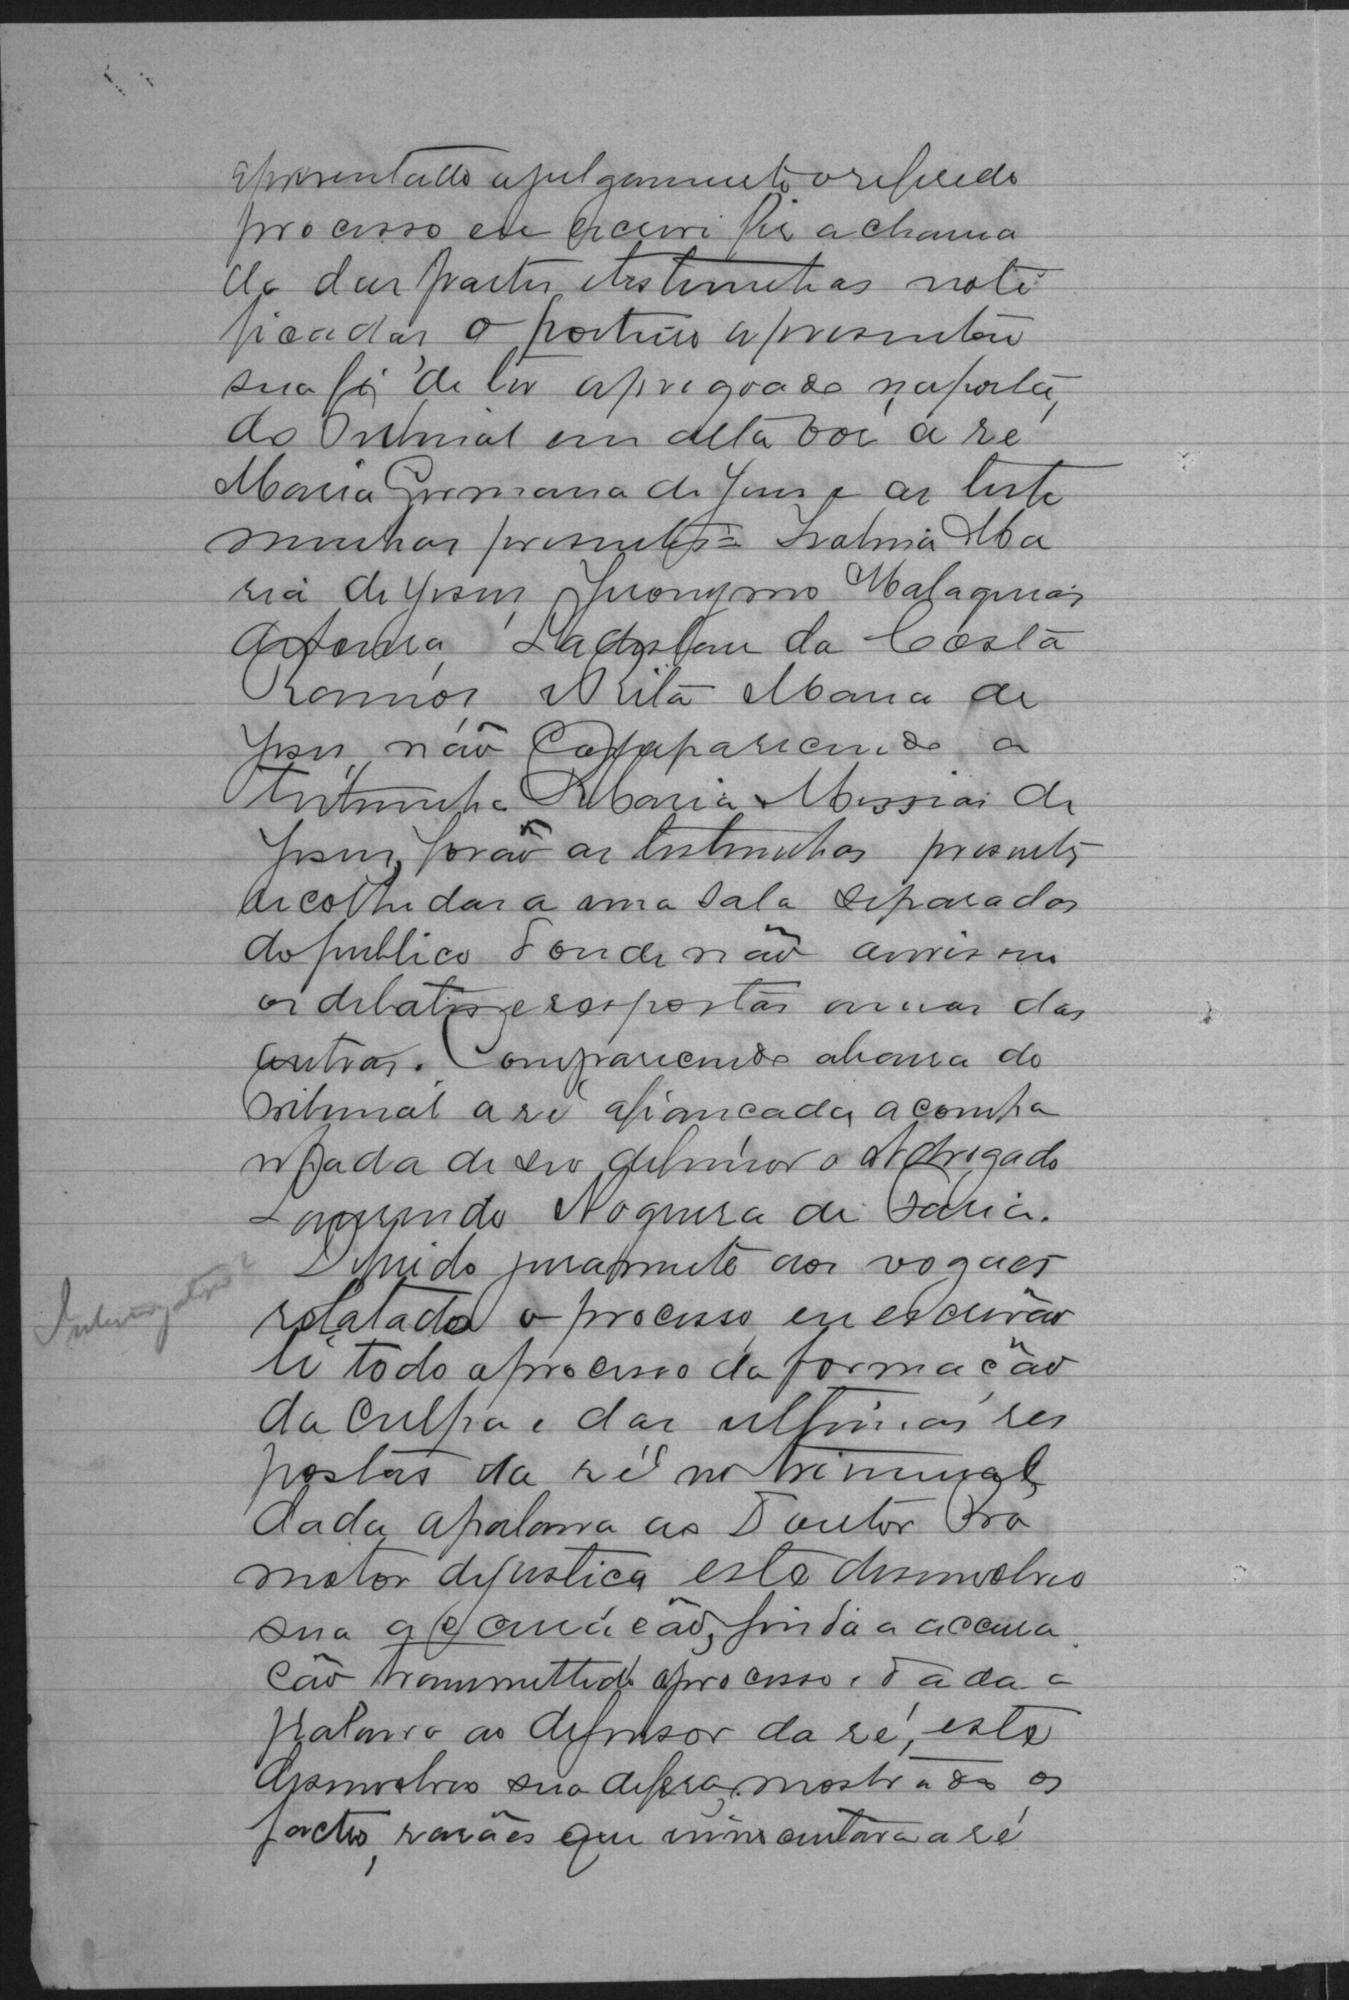 apresentado a julgamento o referido
processo eu escrivão fiz a chama
da das partes e testemunhas noti
ficadas, o porteiro apresentou
sua fé de ter apregoado na porta
do Tribunal em alta voz a ré
Maria Germana de Jesus e as teste
munhas presentes = Maria
de Jesus, Jeronymo Malaquias
Ladislau da Costa
Ramos, e Rita Maria de
Jesus, não comparecendo a
testemunha Maria Messias de
Jesus, forão as testemunhas presentes
recolhidas a uma sala separadas
do publico d'onde não ouvissem
os debates e respostas umas das
outras. Comparecendo a barra do
tribunal a ré afiancada, acompa
nhada de seo defensor o Advogado
Nogueira de Faria.
Deferido juramento aos vogaes
relatado o processo, eu escrivão
li todo o processo da formação
da culpa e das ultimas res
postas da ré no tribunal,
dada a palavra ao Doutor Pro
motor de justica este desenvolveo
sua accusacão, finda a accusa
cão transmettido o processo e dada a
palavra ao defensor da ré, este
desenvolveo sua defesa, mostrado os
factos, rasões que a ré
Interrogatorio